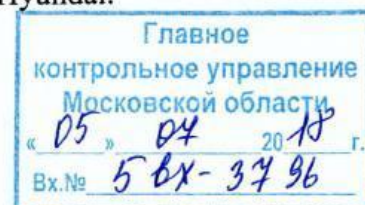 Hyundai.
Главное
контрольное управление
Московской области
« 05 » 07 2018 г.
Вх.№ 5 вх - 3796